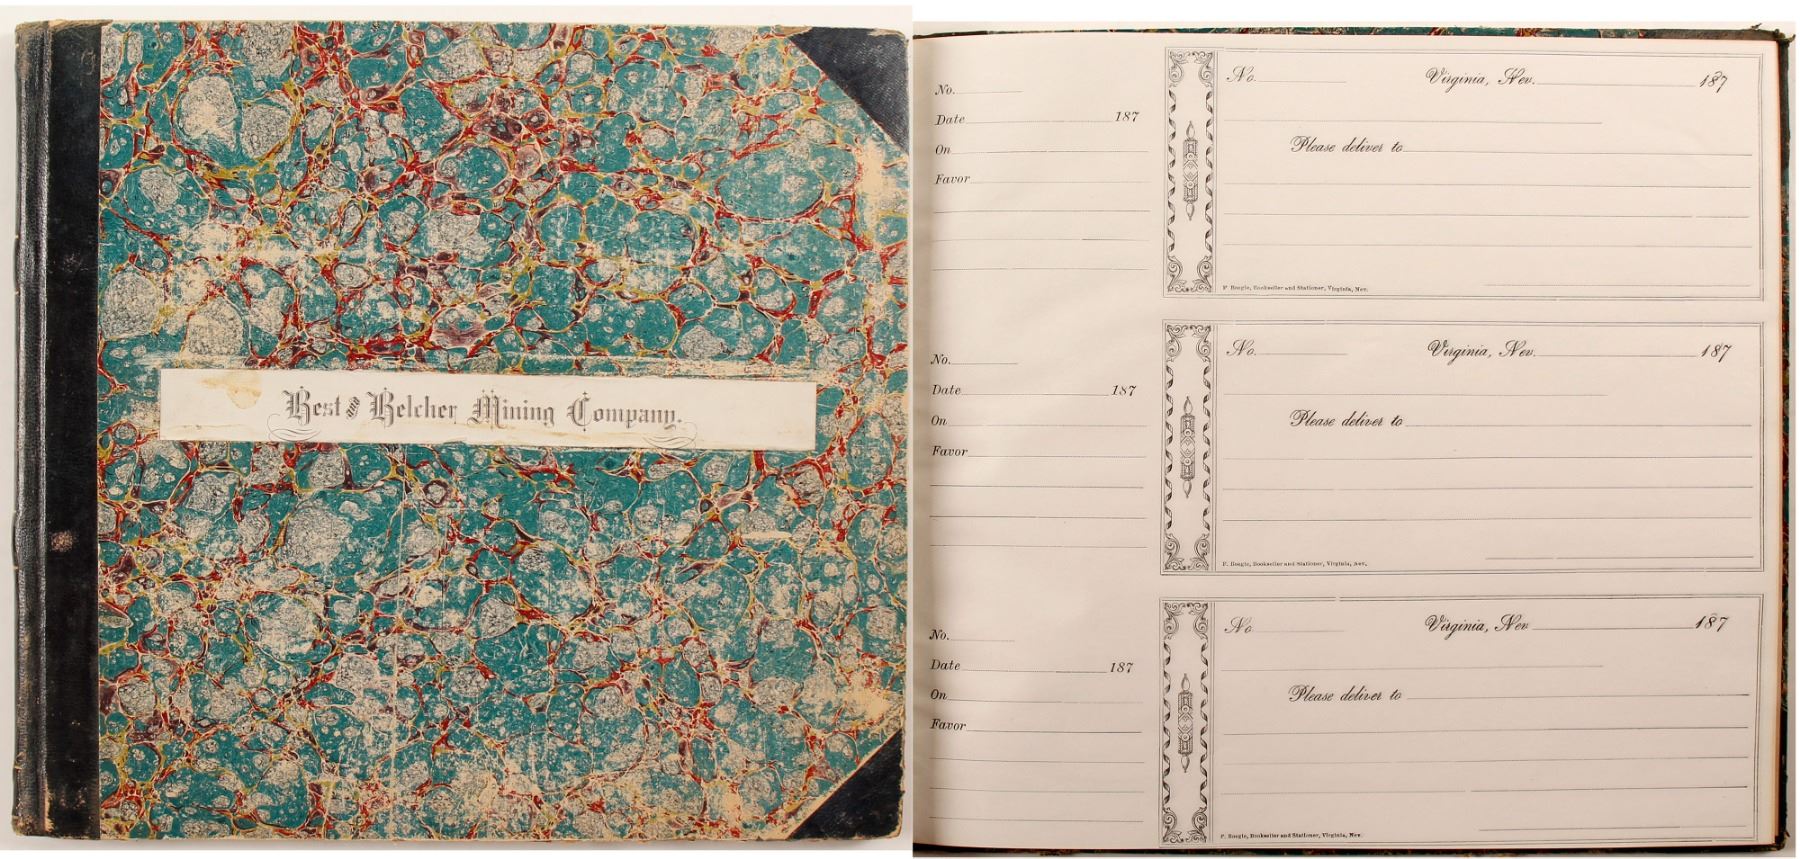 Best and Belcher Mining Company.
No.
Date 187
On
Favor
No. Virginia, Nev. 187
Please deliver to
F. Boegle, Bookseller and Stationer, Virginia, Nev.
No.
Date 187
On
Favor
No. Virginia, Nev. 187
Please deliver to
F. Boegle, Bookseller and Stationer, Virginia, Nev.
No.
Date 187
On
Favor
No. Virginia, Nev. 187
Please deliver to
F. Boegle, Bookseller and Stationer, Virginia, Nev.